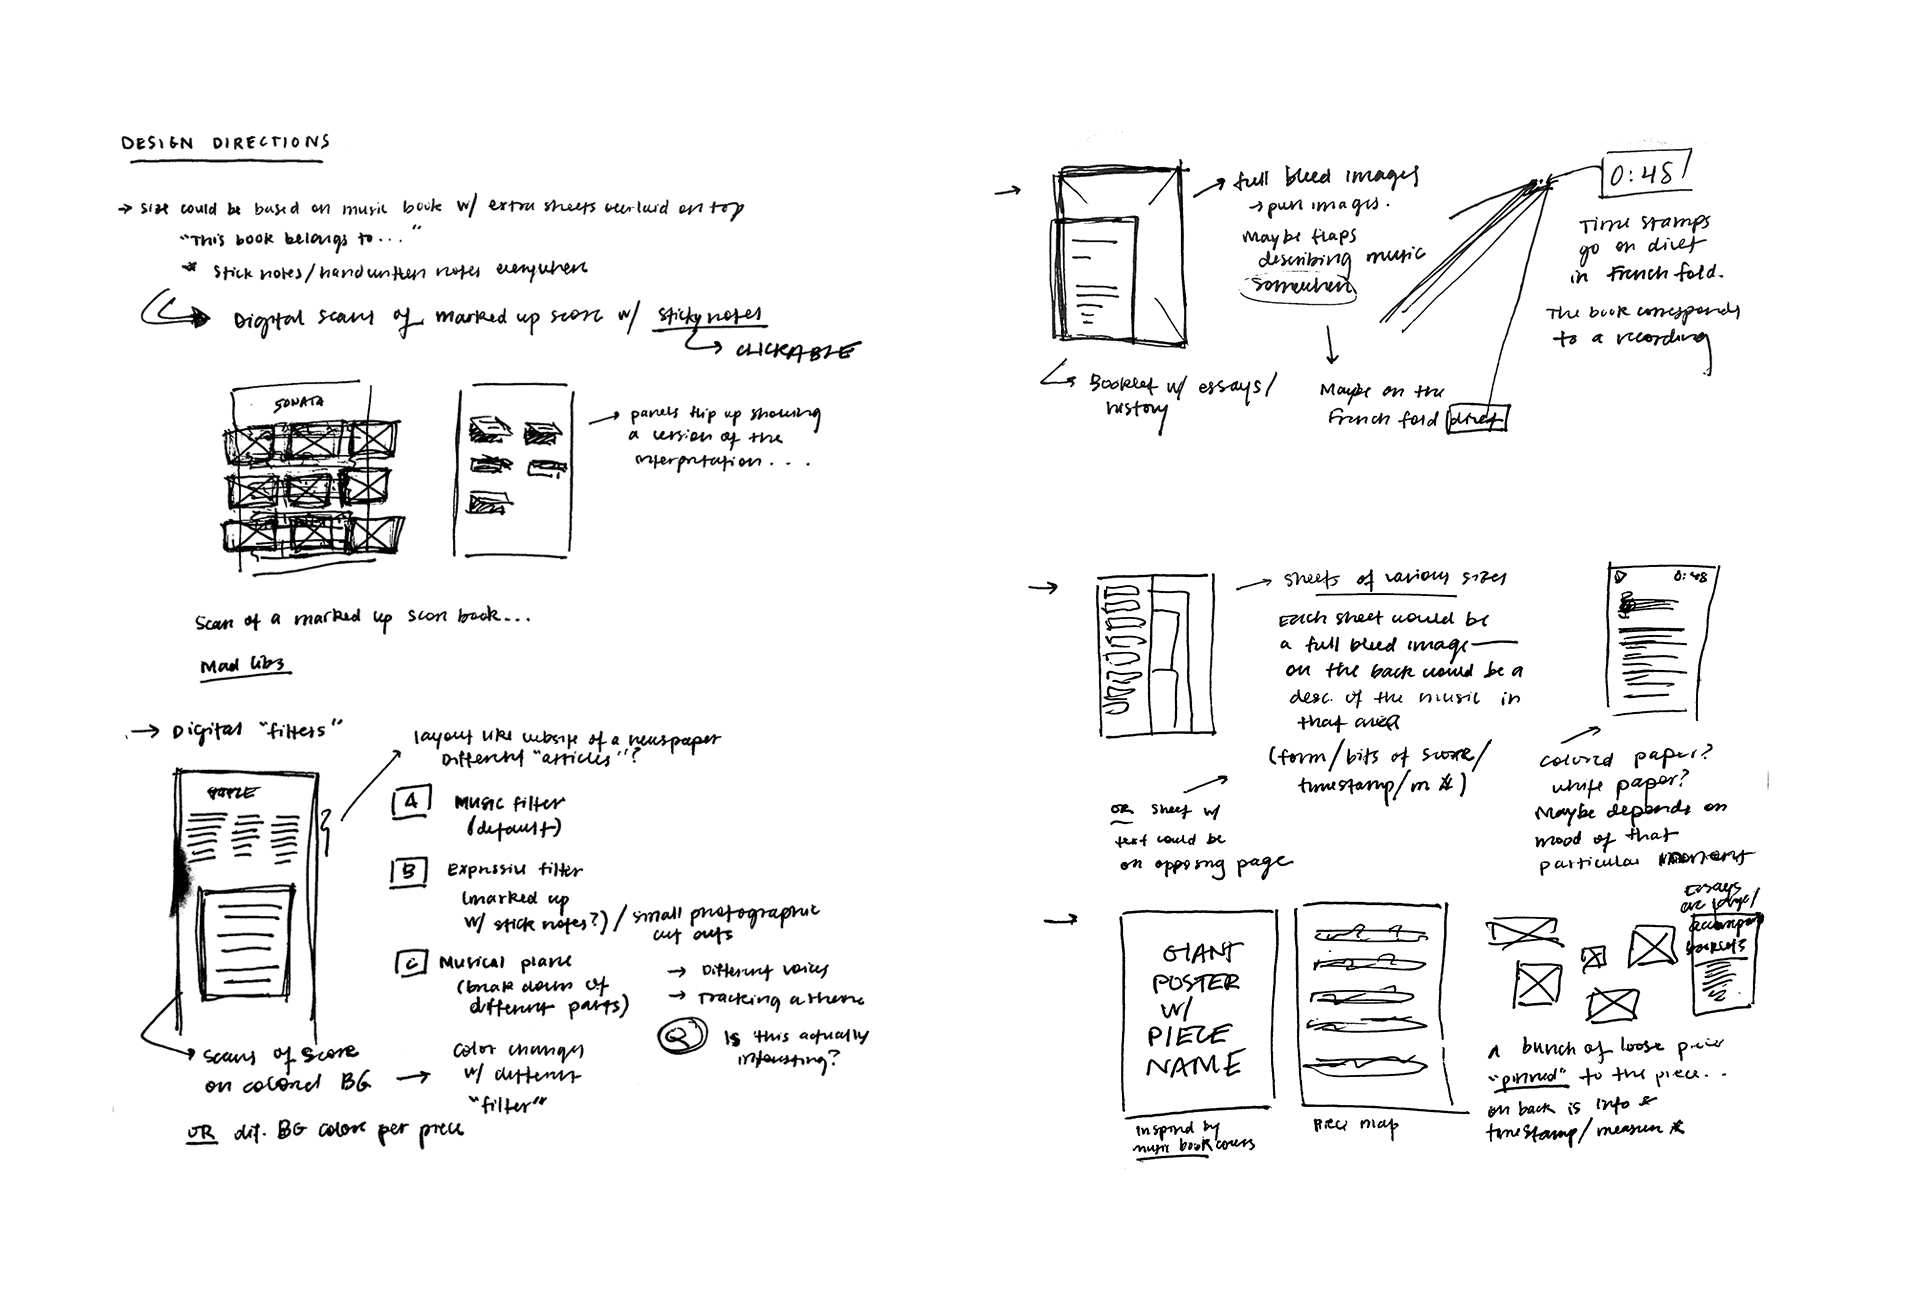 DESIGN DIRECTIONS
→ Size could be based on music book w/ extra sheets overlaid on top
"This book belongs to..."
* Stick notes/handwritten notes everywhere
Digital scans of marked up score w/ sticky notes
→ CLICKABLE
SONATA
→ panels flip up showing
a version of the
interpretation....
Scan of a marked up score back...
Mad libs
→ Digital "filters"
layout like website of a newspaper
Different "articles"?
A Music filter
(default)
B Expressive filter
(marked up
w/ stick notes?) / small photographic
cut outs
C Musical plane
(break down of
different parts)
→ Different voices
→ Tracking a theme
Q Is this actually
interesting?
Scans of score
on colored BG →
color changes
w/ different
"filter"
OR dif. BG colors per piece
→ full bleed images
→ pun images.
Maybe flaps
describing music
Somewhere
Booklet w/ essays/
history
Maybe on the
French fold divet
0:48
Time stamps
go on divet
in French fold.
The book corresponds
to a recording
→ Sheets of various sizes
Each sheet would be
a full bleed image—
on the back would be a
desc. of the music in
that area
(form/bits of score/
timestamp/m #)
OR sheet w/
text could be
on opposing page
0:48
colored paper?
white paper?
Maybe depends on
mood of that
particular moment
GIANT
POSTER
W/
PIECE
NAME
Inspired by
music book covers
Piece map
Essays
booklets
A bunch of loose piece
"pinned" to the piece..
on back is info &
timestamp/measure #